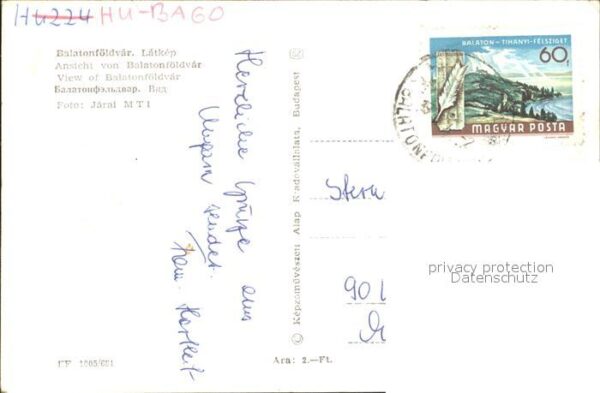 HU224 HU-BAGO
Balatonföldvár. Látkép
Ansicht von Balatonföldvár
View of Balatonföldvár
Балатонфэльдвар. Вид
Foto: Járai MTI
Herzliche Grüße aus
Ungarn sendet
Fam.
© Képzőművészeti Alap Kiadóvállalata, Budapest
BALATON - TIHANYI-FÉLSZIGET
60f
MAGYAR POSTA
Stern
901
privacy protection
Datenschutz
Ára: 2.-Ft.